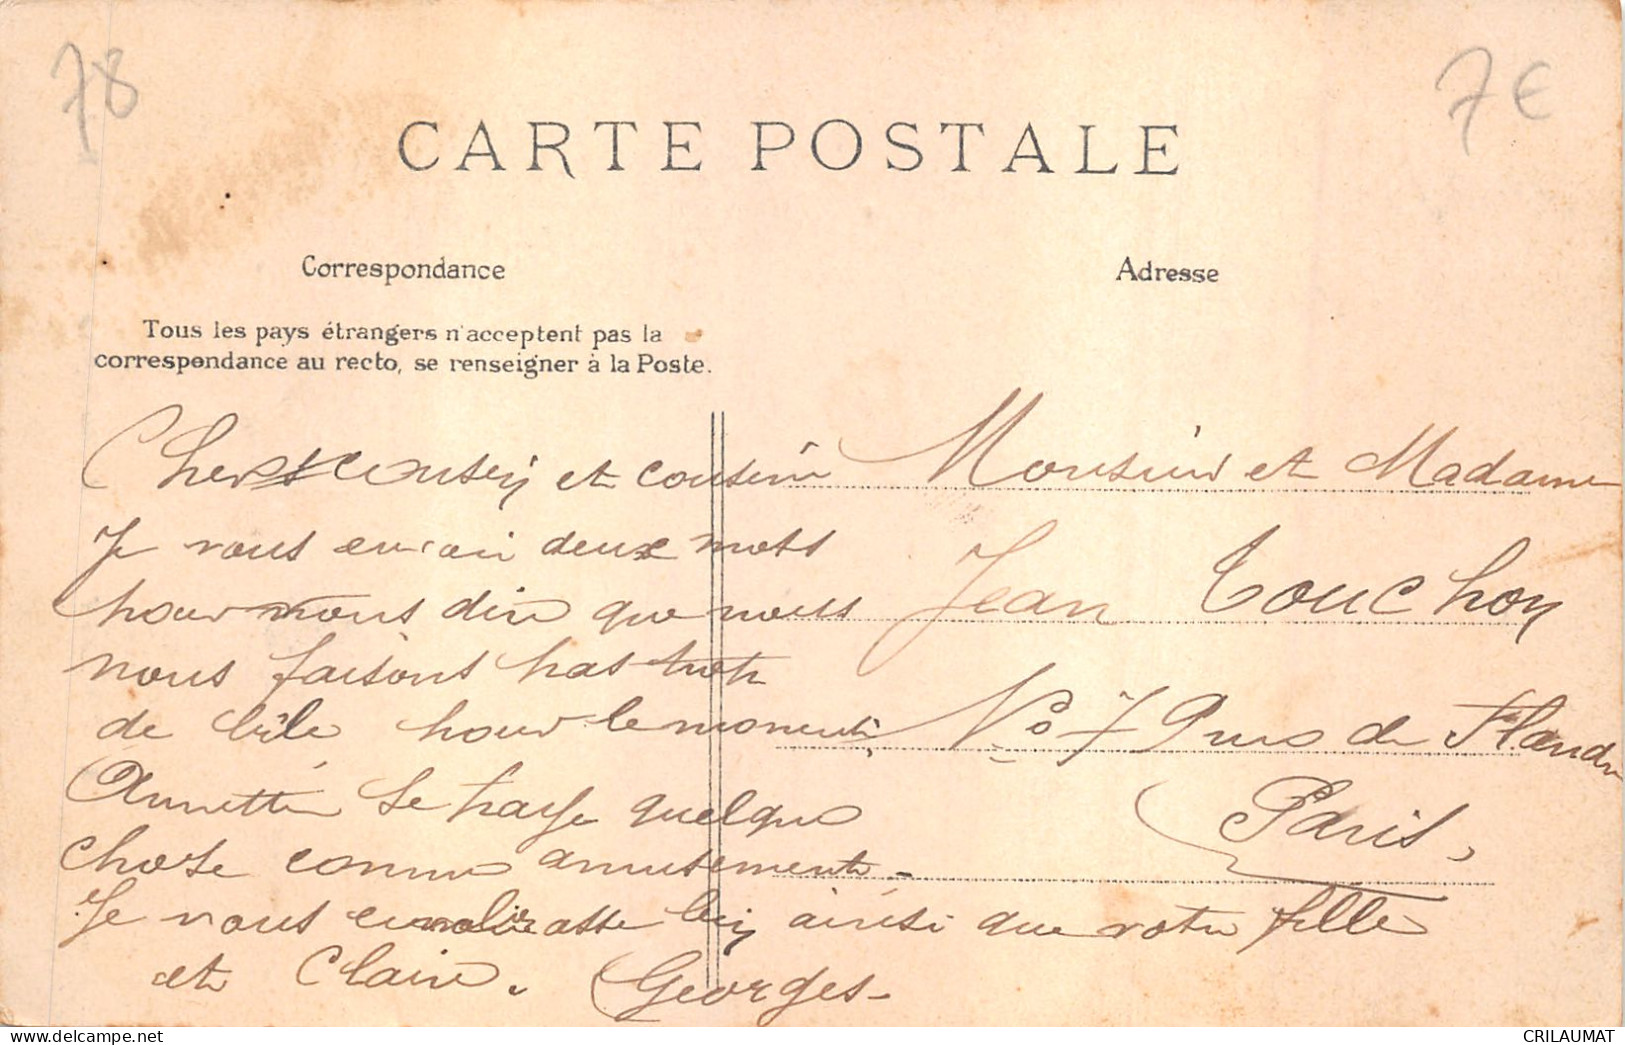 78
7€
CARTE POSTALE
Correspondance
Adresse
Tous les pays étrangers n'acceptent pas la
correspondance au recto, se renseigner à la Poste.
Chers cousin et cousine
Je vous envoi deux mots
pour vous dire que nous
nous faisons pas trop
de bile pour le moment,
Annette se paye quelque
chose comme amusement -
Je vous embrasse bien ainsi que votre fille
et Claire. Georges -
Monsieur et Madame
Jean Touchon
No 7 Quai de Flandre
Paris,
CRILAUMAT